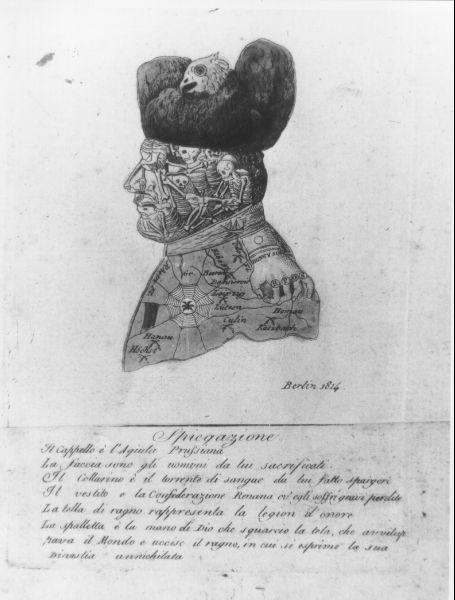 Leipzig
Lutzen
Culm
Hanau
Katzbach
Hanau
Höchst
Berlin 1814.
Spiegazione
Il Cappello è l'Aquila Prussiana
La faccia sono gli uomini da lui sacrificati
Il Collarino è il torrente di sangue da lui fatto spargere
Il vestito e la Confederazione Renana ov' egli soffri gravi perdite
La tella di ragno rappresenta la legion il onore
La spalletta è la mano di Dio che squarcio la tela, che avvilup
pava il Mondo e uccise il ragno, in cui si esprime la sua
Dinastia annichilata